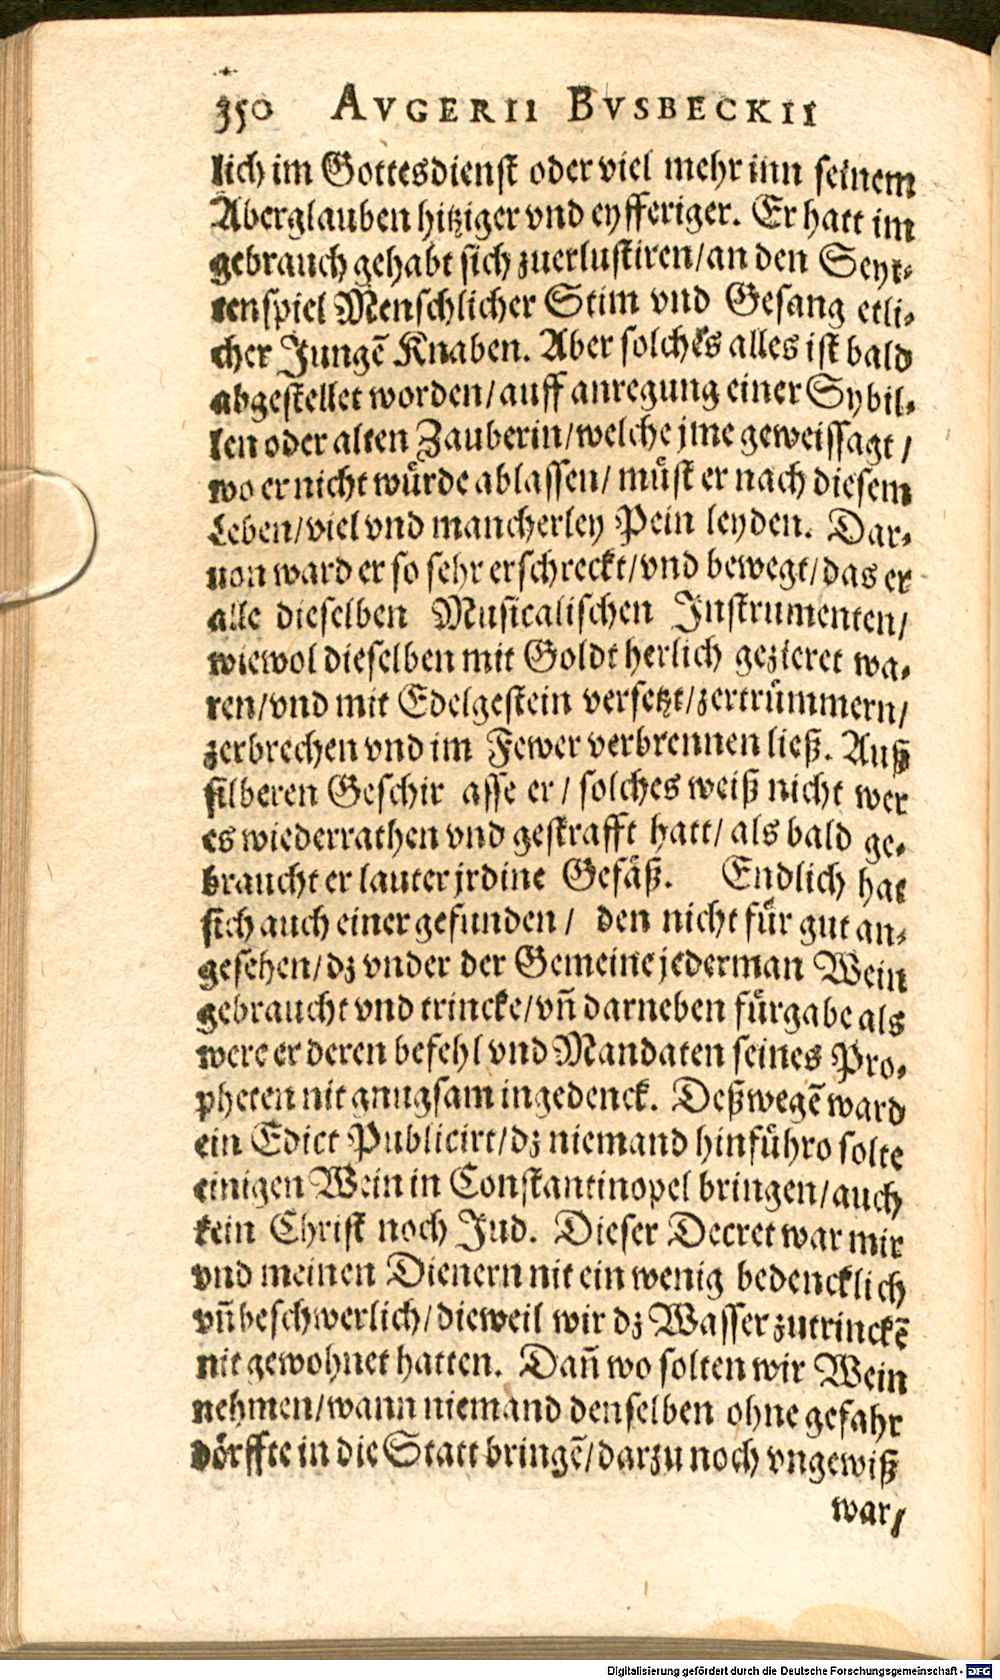 350 AVGERII BVSBECKII
lich im Gottesdienst oder viel mehr inn seinem
Aberglauben hitziger vnd eyfferiger. Er hatt im
gebrauch gehabt sich zuerlustiren/an den Seyt-
tenspiel Menschlicher Stim vnd Gesang etli-
cher Jungẽ Knaben. Aber solches alles ist bald
abgestellet worden/auff anregung einer Sybil-
len oder alten Zauberin/welche jme geweissagt/
wo er nicht würde ablassen/ müst er nach diesem
Leben/viel vnd mancherley Pein leyden. Dar-
uon ward er so sehr erschreckt/vnd bewegt/das er
alle dieselben Musicalischen Instrumenten/
wiewol dieselben mit Goldt herlich gezieret wa-
ren/vnd mit Edelgestein versetzt/zertrümmern/
zerbrechen vnd im Fewer verbrennen ließ. Auß
silberen Geschir asse er/ solches weiß nicht wer
es wiederrathen vnd gestrafft hatt/ als bald ge-
braucht er lauter jrdine Gefäß. Endlich hat
sich auch einer gefunden/ den nicht für gut an-
gesehen/dz vnder der Gemeine jederman Wein
gebraucht vnd trincke/vñ darneben fürgabe als
were er deren befehl vnd Mandaten seines Pro-
pheten nit gnugsam ingedenck. Deßwegẽ ward
ein Edict Publicirt/dz niemand hinführo solte
einigen Wein in Constantinopel bringen/auch
kein Christ noch Jud. Dieser Decret war mir
vnd meinen Dienern nit ein wenig bedencklich
vñ beschwerlich/dieweil wir dz Wasser zutrinckẽ
nit gewohnet hatten. Dañ wo solten wir Wein
nehmen/wann niemand denselben ohne gefahr
dörffte in die Statt bringẽ/darzu noch vngewiß
war/
Digitalisierung gefördert durch die Deutsche Forschungsgemeinschaft - DFG